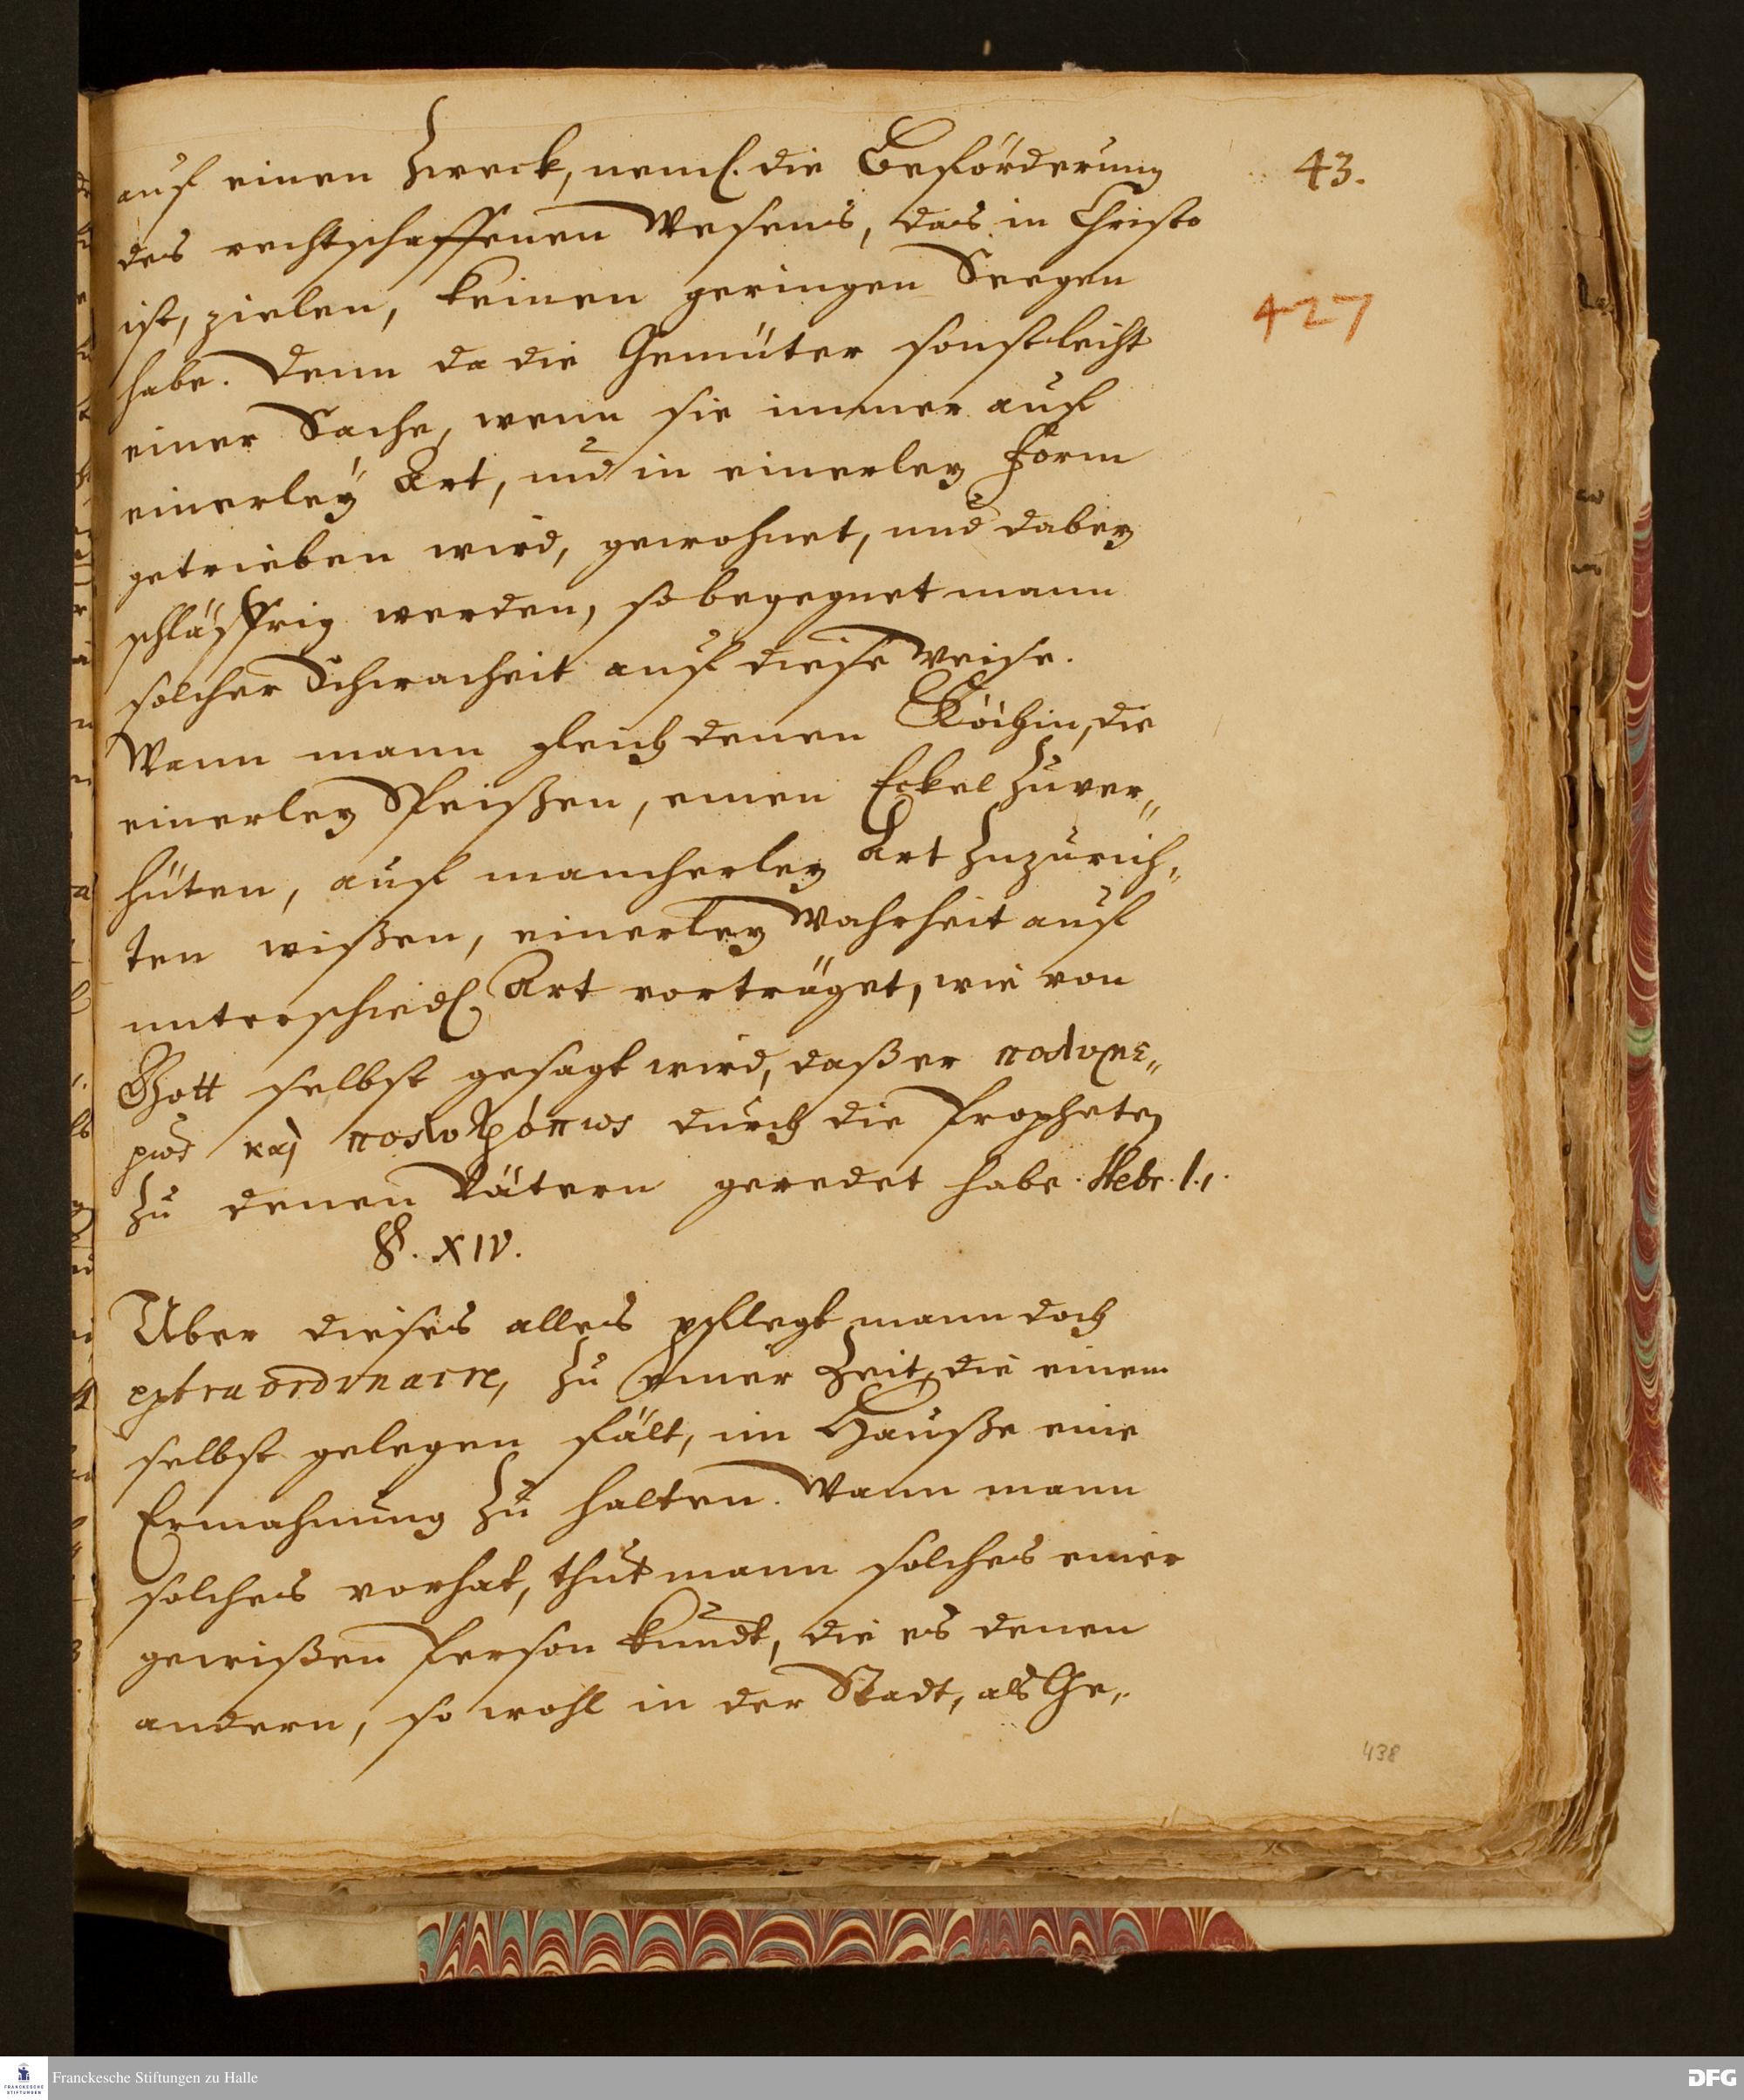 auf einen Zweck, neml. die Beförderung
des rechtschaffenen Wesens, das in Christo
ist, zielen, keinen geringen Seegen
habe. Denn da die Gemüter sonst leicht
einer Sache, wenn sie immer auf
einerley Art, und in einerley Form
getrieben wird, gewohnet, und dabey
schläffrig werden, so begegnet mann
solcher Schwacheit auf diese Weise.
Wenn mann gleich denen Köchin, die
einerley Speißen, einen Eckel zu ver„
hüten, auf mancherley Art zuzurich„
ten wißen, einerley Wahrheit auf
unterschiedl. Art vorträget, wie von
Gott selbst gesagt wird, daß er πολυμε„
ρως καὶ πολυτρόπως durch die Propheten
zu denen Vätern geredet habe. Hebr. 1.1.
§. XIV.
Über dieses alles pflegt mann doch
extraordinairè, zu einer Zeit, die einem
selbst gelegen fält, im Hauße eine
Ermahnung zu halten. Wann mann
solches vorhat, thut mann solches einer
gewißen Person kundt, die es denen
andern, so wohl in der Stadt, als Ge„
43.
427
438
Franckesche Stiftungen zu Halle
FRANCKESCHE STIFTUNGEN
DFG